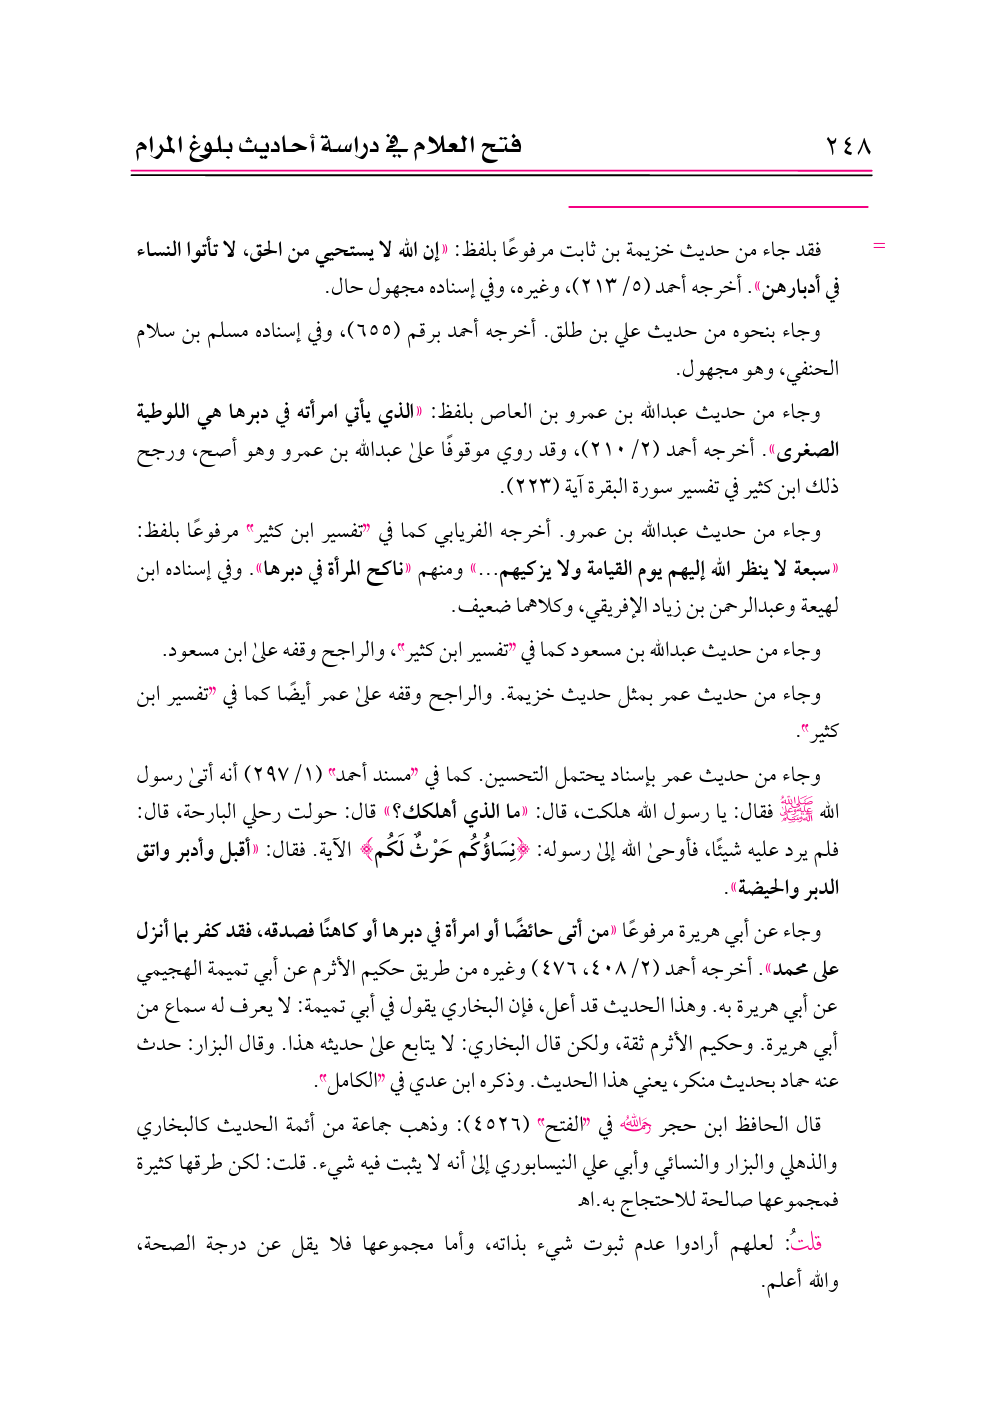 ٢٤٨ فتح العلام في دراسة أحاديث بلوغ المرام
= فقد جاء من حديث خزيمة بن ثابت مرفوعًا بلفظ: «إن الله لا يستحيي من الحق، لا تأتوا النساء
في أدبارهن». أخرجه أحمد (٥/ ٢١٣)، وغيره، وفي إسناده مجهول حال.
وجاء بنحوه من حديث علي بن طلق. أخرجه أحمد برقم (٦٥٥)، وفي إسناده مسلم بن سلام
الحنفي، وهو مجهول.
وجاء من حديث عبدالله بن عمرو بن العاص بلفظ: «الذي يأتي امرأته في دبرها هي اللوطية
الصغرى». أخرجه أحمد (٢/ ٢١٠)، وقد روي موقوفًا علىٰ عبدالله بن عمرو وهو أصح، ورجح
ذلك ابن كثير في تفسير سورة البقرة آية (٢٢٣).
وجاء من حديث عبدالله بن عمرو. أخرجه الفريابي كما في "تفسير ابن كثير" مرفوعًا بلفظ:
«سبعة لا ينظر الله إليهم يوم القيامة ولا يزكيهم...» ومنهم «ناكح المرأة في دبرها». وفي إسناده ابن
لهيعة وعبدالرحمن بن زياد الإفريقي، وكلاهما ضعيف.
وجاء من حديث عبدالله بن مسعود كما في "تفسير ابن كثير"، والراجح وقفه علىٰ ابن مسعود.
وجاء من حديث عمر بمثل حديث خزيمة. والراجح وقفه علىٰ عمر أيضًا كما في "تفسير ابن
كثير".
وجاء من حديث عمر بإسناد يحتمل التحسين. كما في "مسند أحمد" (١/ ٢٩٧) أنه أتىٰ رسول
الله ﷺ فقال: يا رسول الله هلكت، قال: «ما الذي أهلكك؟» قال: حولت رحلي البارحة، قال:
فلم يرد عليه شيئًا، فأوحىٰ الله إلىٰ رسوله: ﴿نِسَاؤُكُم حَرْثٌ لَكُم﴾ الآية. فقال: «أقبل وأدبر واتق
الدبر والحيضة».
وجاء عن أبي هريرة مرفوعًا «من أتى حائضًا أو امرأة في دبرها أو كاهنًا فصدقه، فقد كفر بما أنزل
على محمد». أخرجه أحمد (٢/ ٤٠٨، ٤٧٦) وغيره من طريق حكيم الأثرم عن أبي تميمة الهجيمي
عن أبي هريرة به. وهذا الحديث قد أعل، فإن البخاري يقول في أبي تميمة: لا يعرف له سماع من
أبي هريرة. وحكيم الأثرم ثقة، ولكن قال البخاري: لا يتابع علىٰ حديثه هذا. وقال البزار: حدث
عنه حماد بحديث منكر، يعني هذا الحديث. وذكره ابن عدي في "الكامل".
قال الحافظ ابن حجر رحمه الله في "الفتح" (٤٥٢٦): وذهب جماعة من أئمة الحديث كالبخاري
والذهلي والبزار والنسائي وأبي علي النيسابوري إلىٰ أنه لا يثبت فيه شيء. قلت: لكن طرقها كثيرة
فمجموعها صالحة للاحتجاج به.اهـ
قلتُ: لعلهم أرادوا عدم ثبوت شيء بذاته، وأما مجموعها فلا يقل عن درجة الصحة،
والله أعلم.